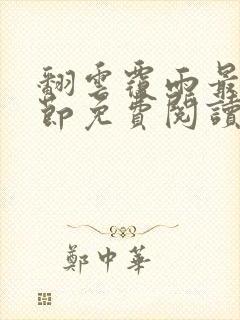 翻雲覆雨最
節免費閱讀
鄭中華